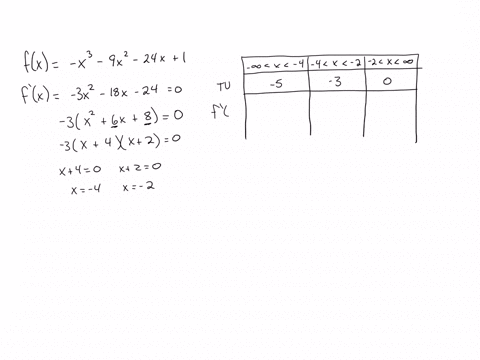 f(x) = -x³ - 9x² - 24x + 1
f'(x) = -3x² - 18x - 24 = 0
-3(x² + 6x + 8) = 0
-3(x + 4)(x + 2) = 0
x + 4 = 0 x + 2 = 0
x = -4 x = -2
-∞ < x < -4 -4 < x < -2 -2 < x < ∞
TV -5 -3 0
f'(